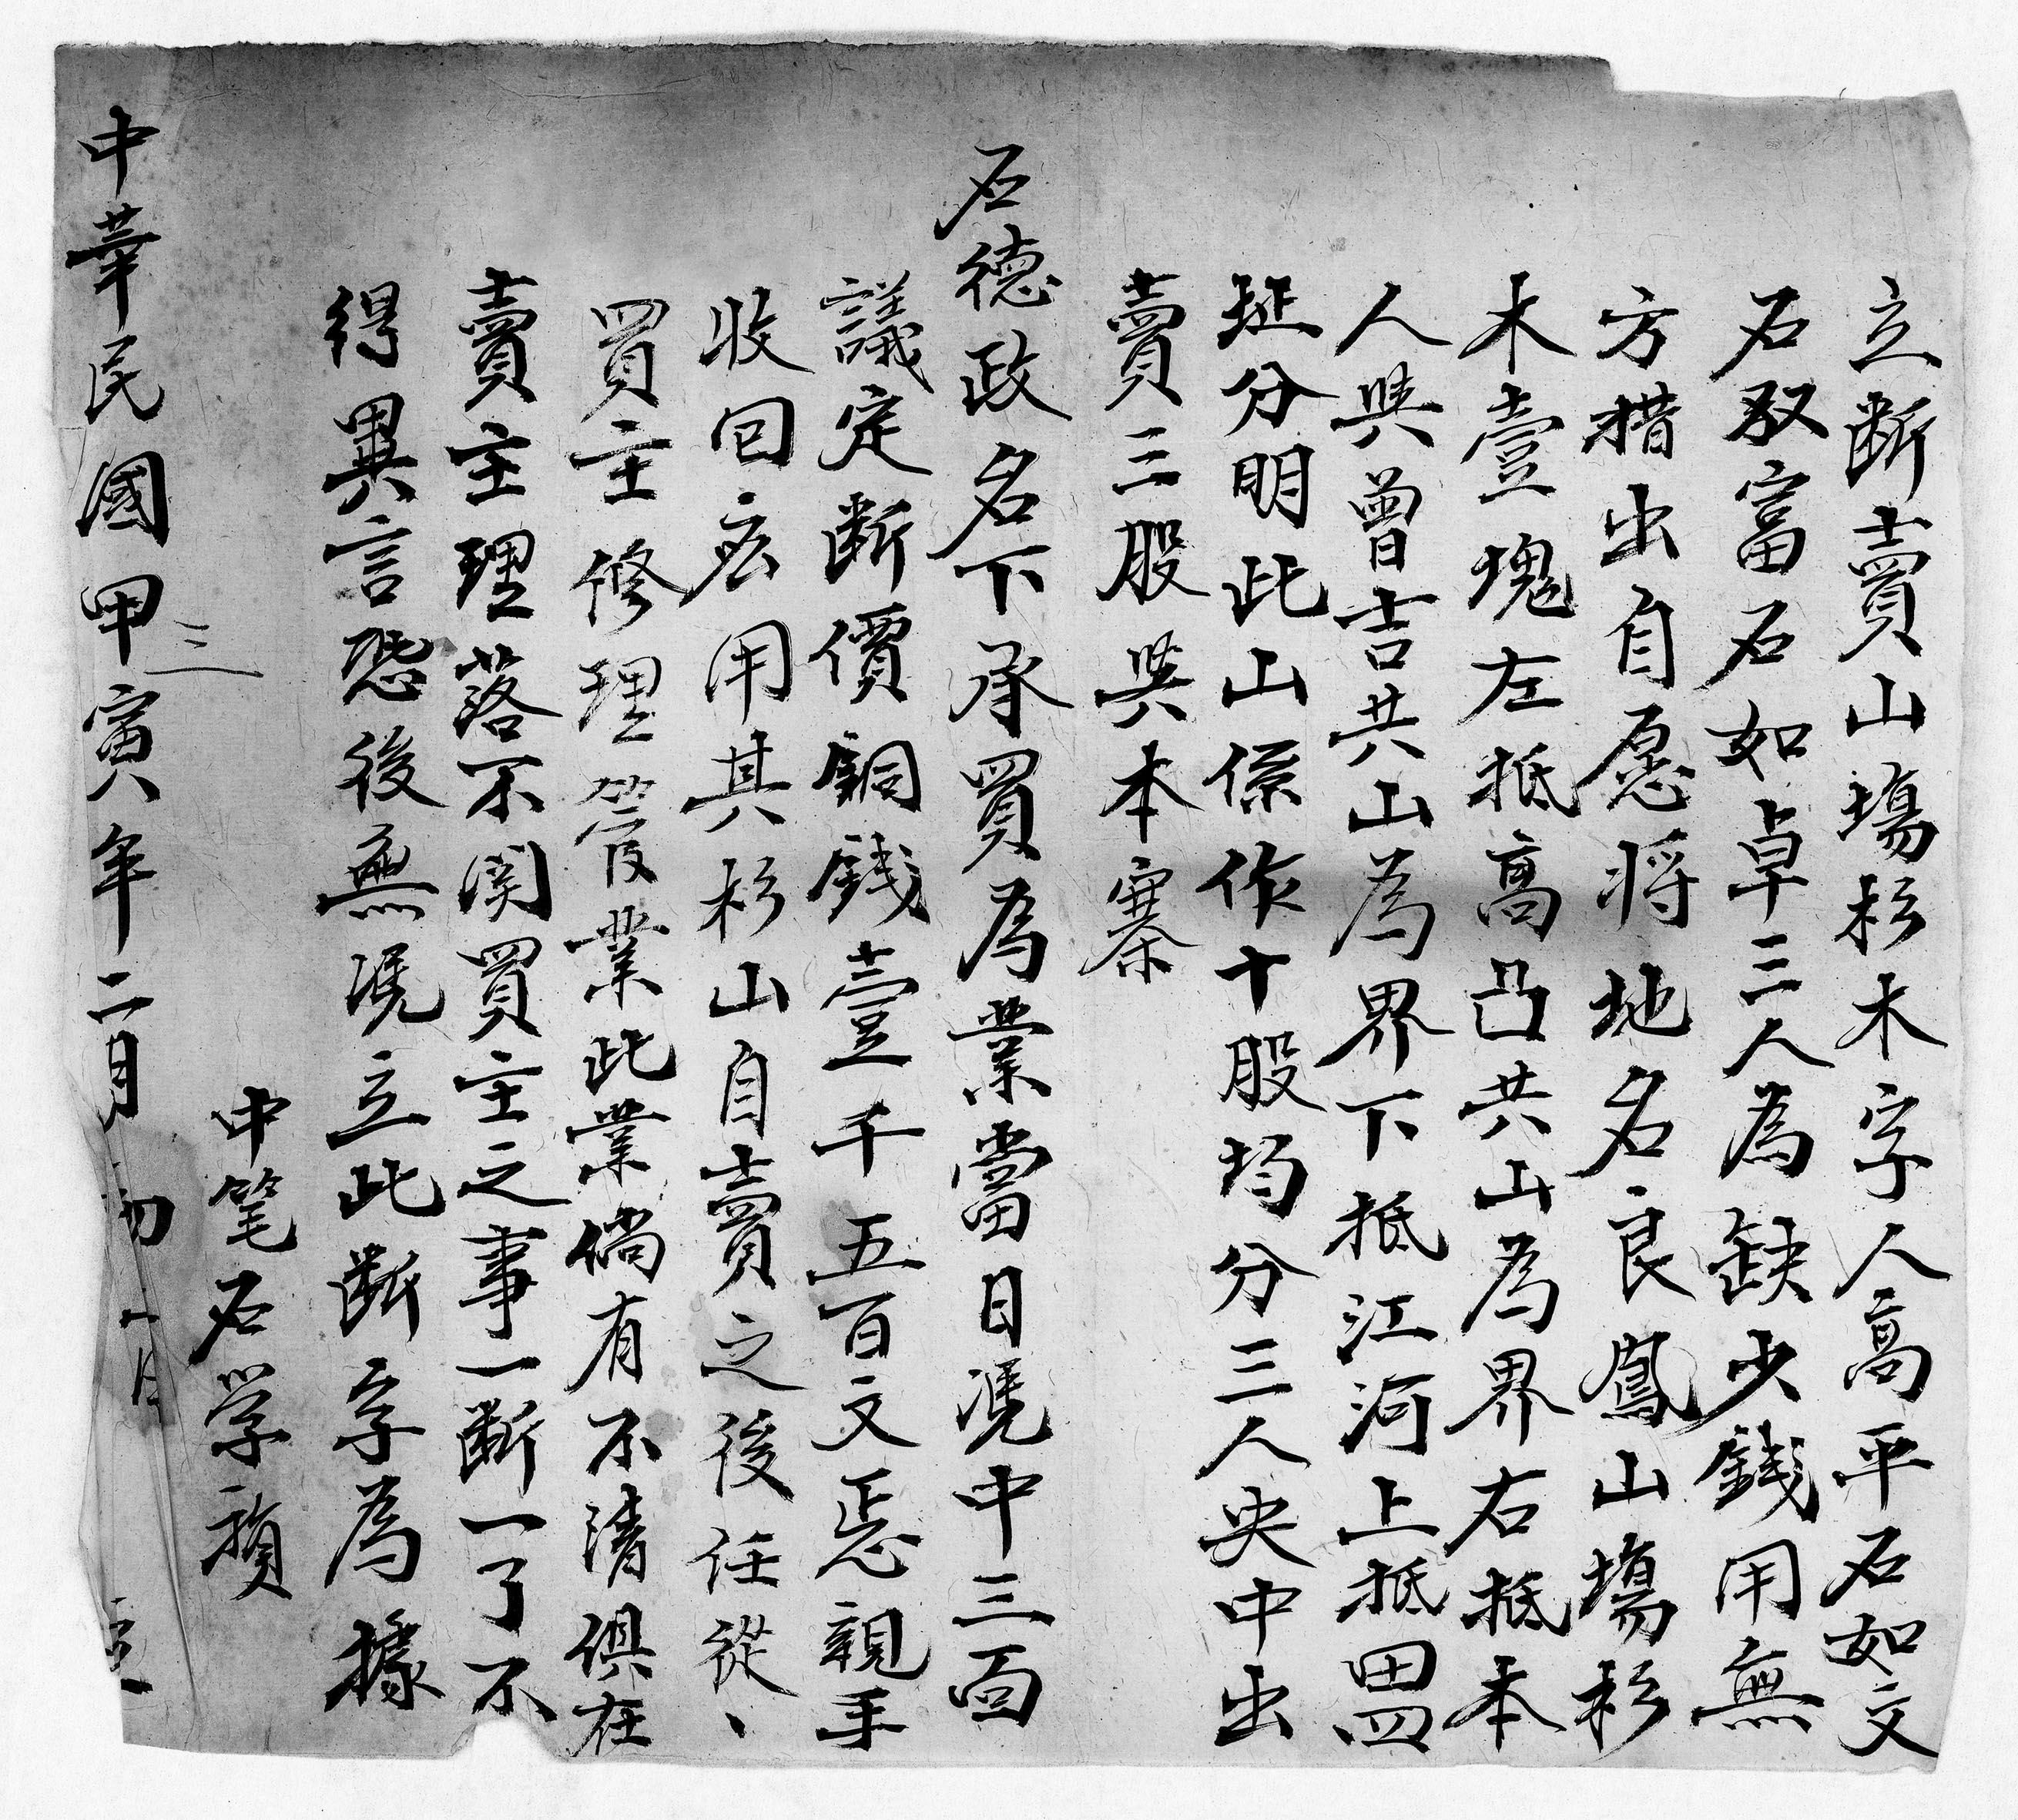 立断賣山場杉木字人高平石如文
石馭富石如卓三人為缺少錢用無
方措出自愿将地名良鳳山塲杉
木壹塊左抵高凸共山為界右抵本
人與曾吉共山為界下抵江河上抵畾四
坵分明此山係作十股均分三人央中出
賣三股與本寨
石德政名下承買為業當日凴中三面
議定断價銅錢壹千五百文悉親手
收回应用其杉山自賣之後任從、
買主修理管業此業倘有不清俱在
賣主理落不関買主之事一断一了不
得異言恐後無凴立此断字為據
三
中笔石学禎
中華民國甲寅年二月初 立